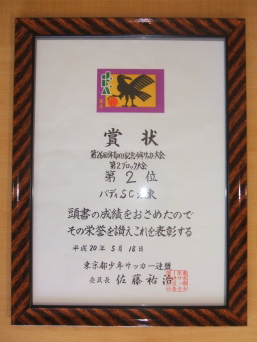 賞状
第2ブロック大会
第2位
バディSC
頭書の成績をおさめたので
その栄誉を讃えこれを表彰する
平成20年5月18日
東京都少年サッカー連盟
委員長 佐藤祐治